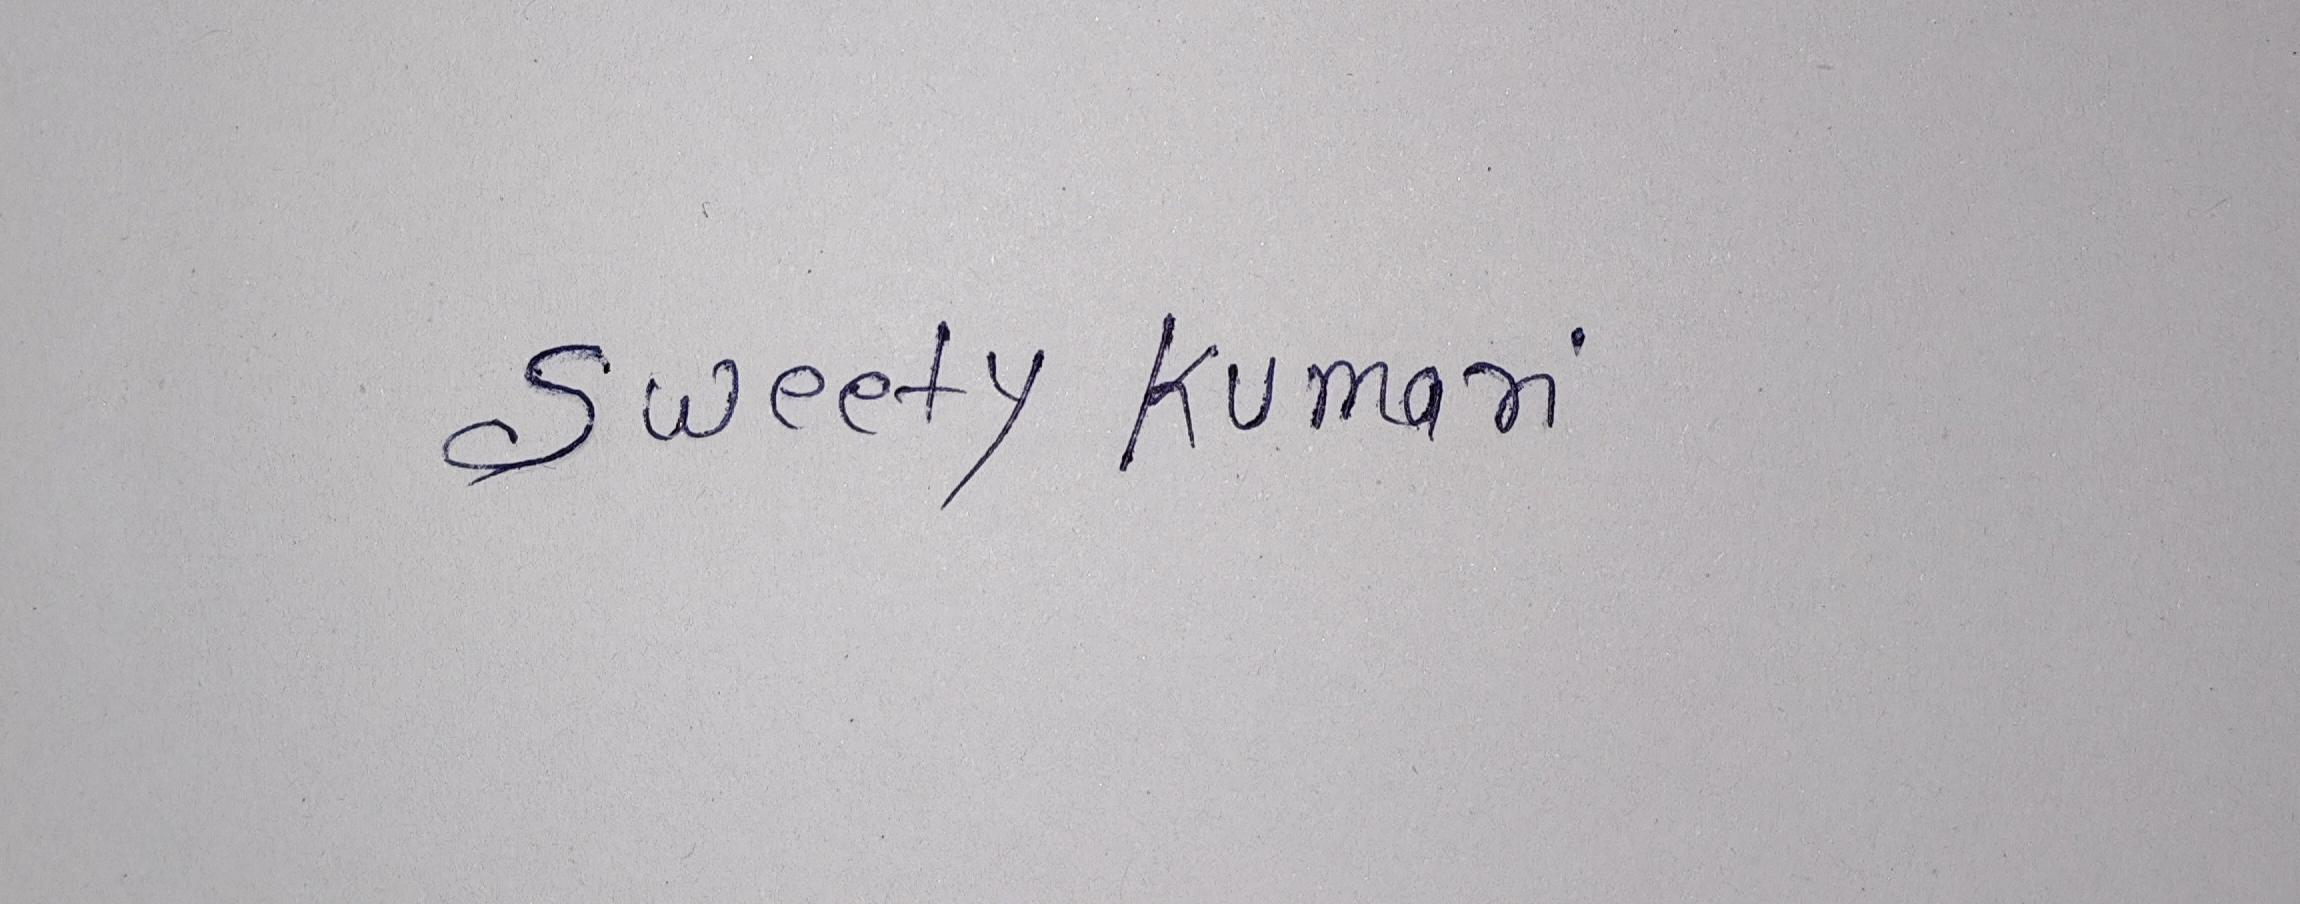 Sweety Kumari